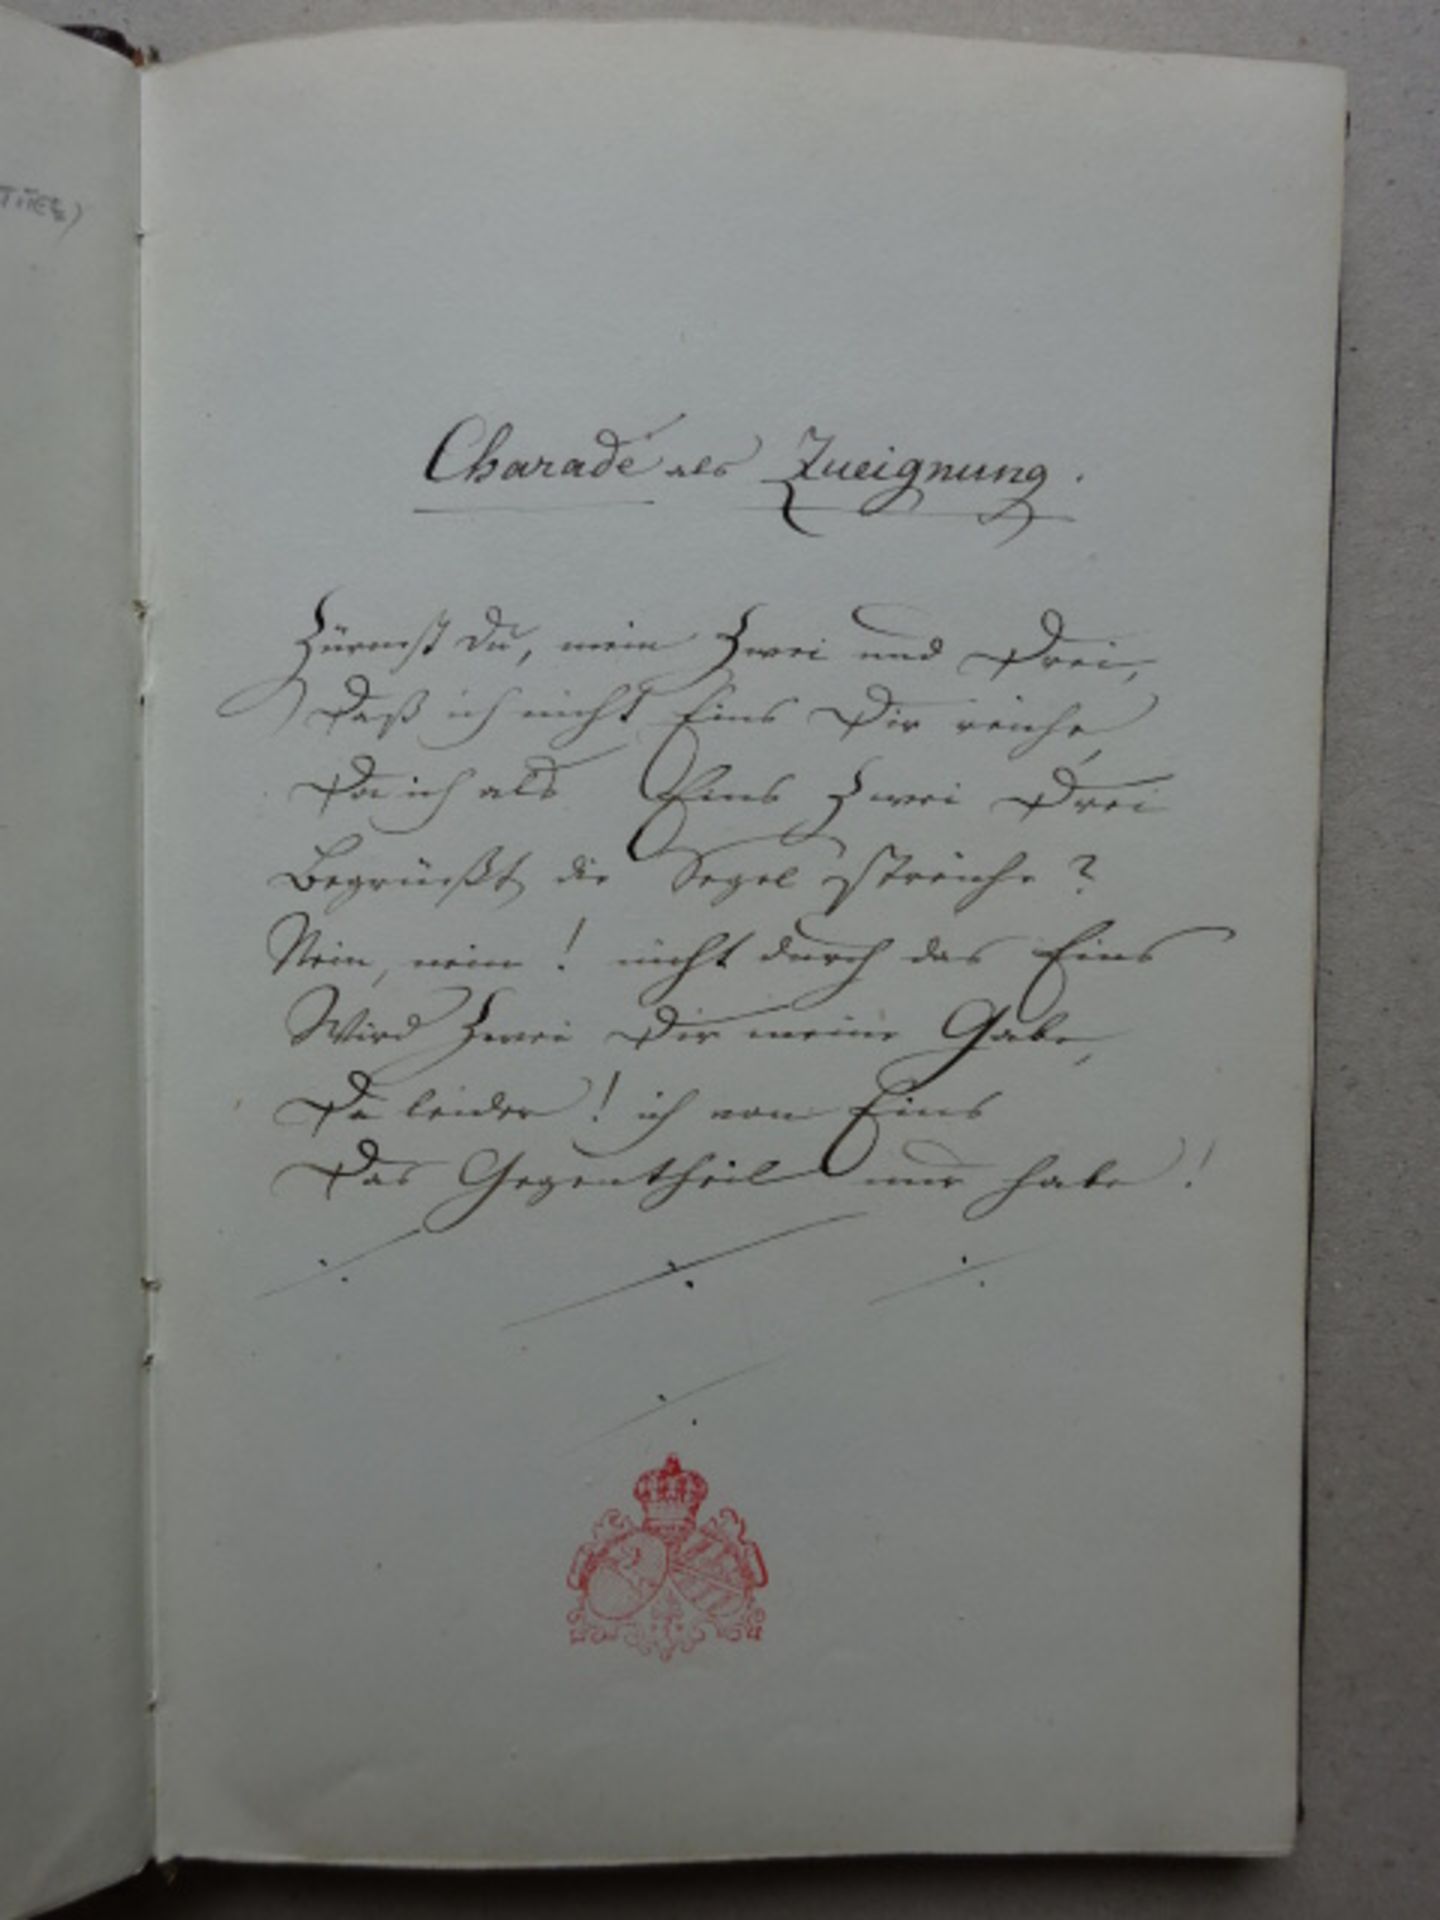 Charade als Zueignung.
Zürnst Du, mein Zwei und Drei,
Daß ich nicht Eins Dir reiche,
Da ich als Eins Zwei Drei
Begrüßt die Segel streiche?
Nein, nein! nicht durch das Eins
Wird Zwei Dir meine Gabe,
Da leider! ich von Eins
Das Gegentheil nur habe!